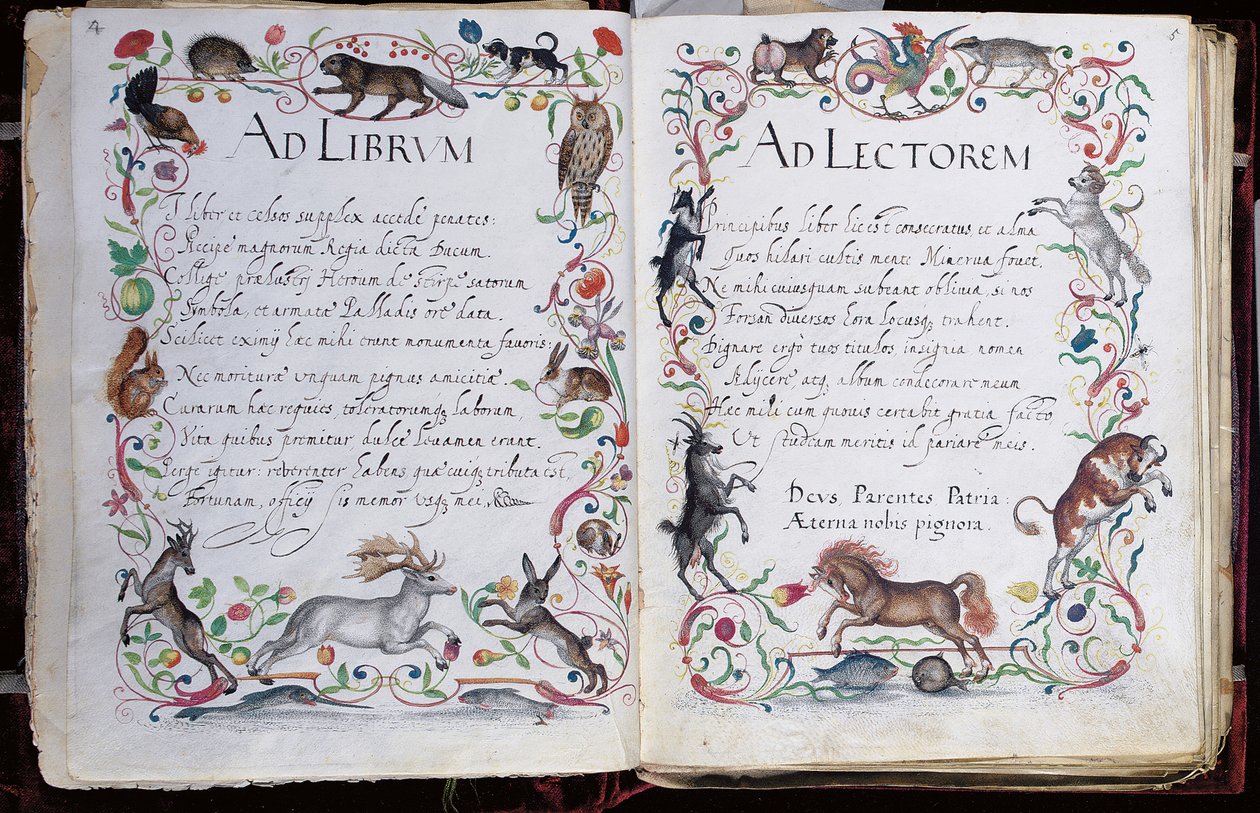 4
AD LIBRVM
I liber et celsos supplex accede penates:
Accipe magnorum Regia dicta Ducum.
Collige prælustrj Heroum de stirpe satorum
Symbola, et armatæ Palladis ore data.
Scilicet eximij hæc mihi erunt monumenta favoris:
Nec morituræ vnquam pignus amicitiæ
Curarum hæc requies, toleratorumq3 laborum,
Vita quibus premitur dulce levamen erunt.
Perge igitur: reverenter habens, quæ cuiq3 tributa est,
Fortunam, officij sis memor usq3 mei.
5
AD LECTOREM
Principibus liber hic est consecratus et alma
Quos hilari cultis mente Minerva fovet.
Ne mihi cuiusquam subeant oblivia, si nos
Forsan diversos hora locusq3 trahent.
Dignare ergò tuos titulos, insignia nomen
Adijcere, atq3 album condecorare meum
Hæc mihi cum quovis certabit gratia facto,
Ut studeam meritis id pariare meis.
DEVS, Parentes Patria:
Æterna nobis pignora.